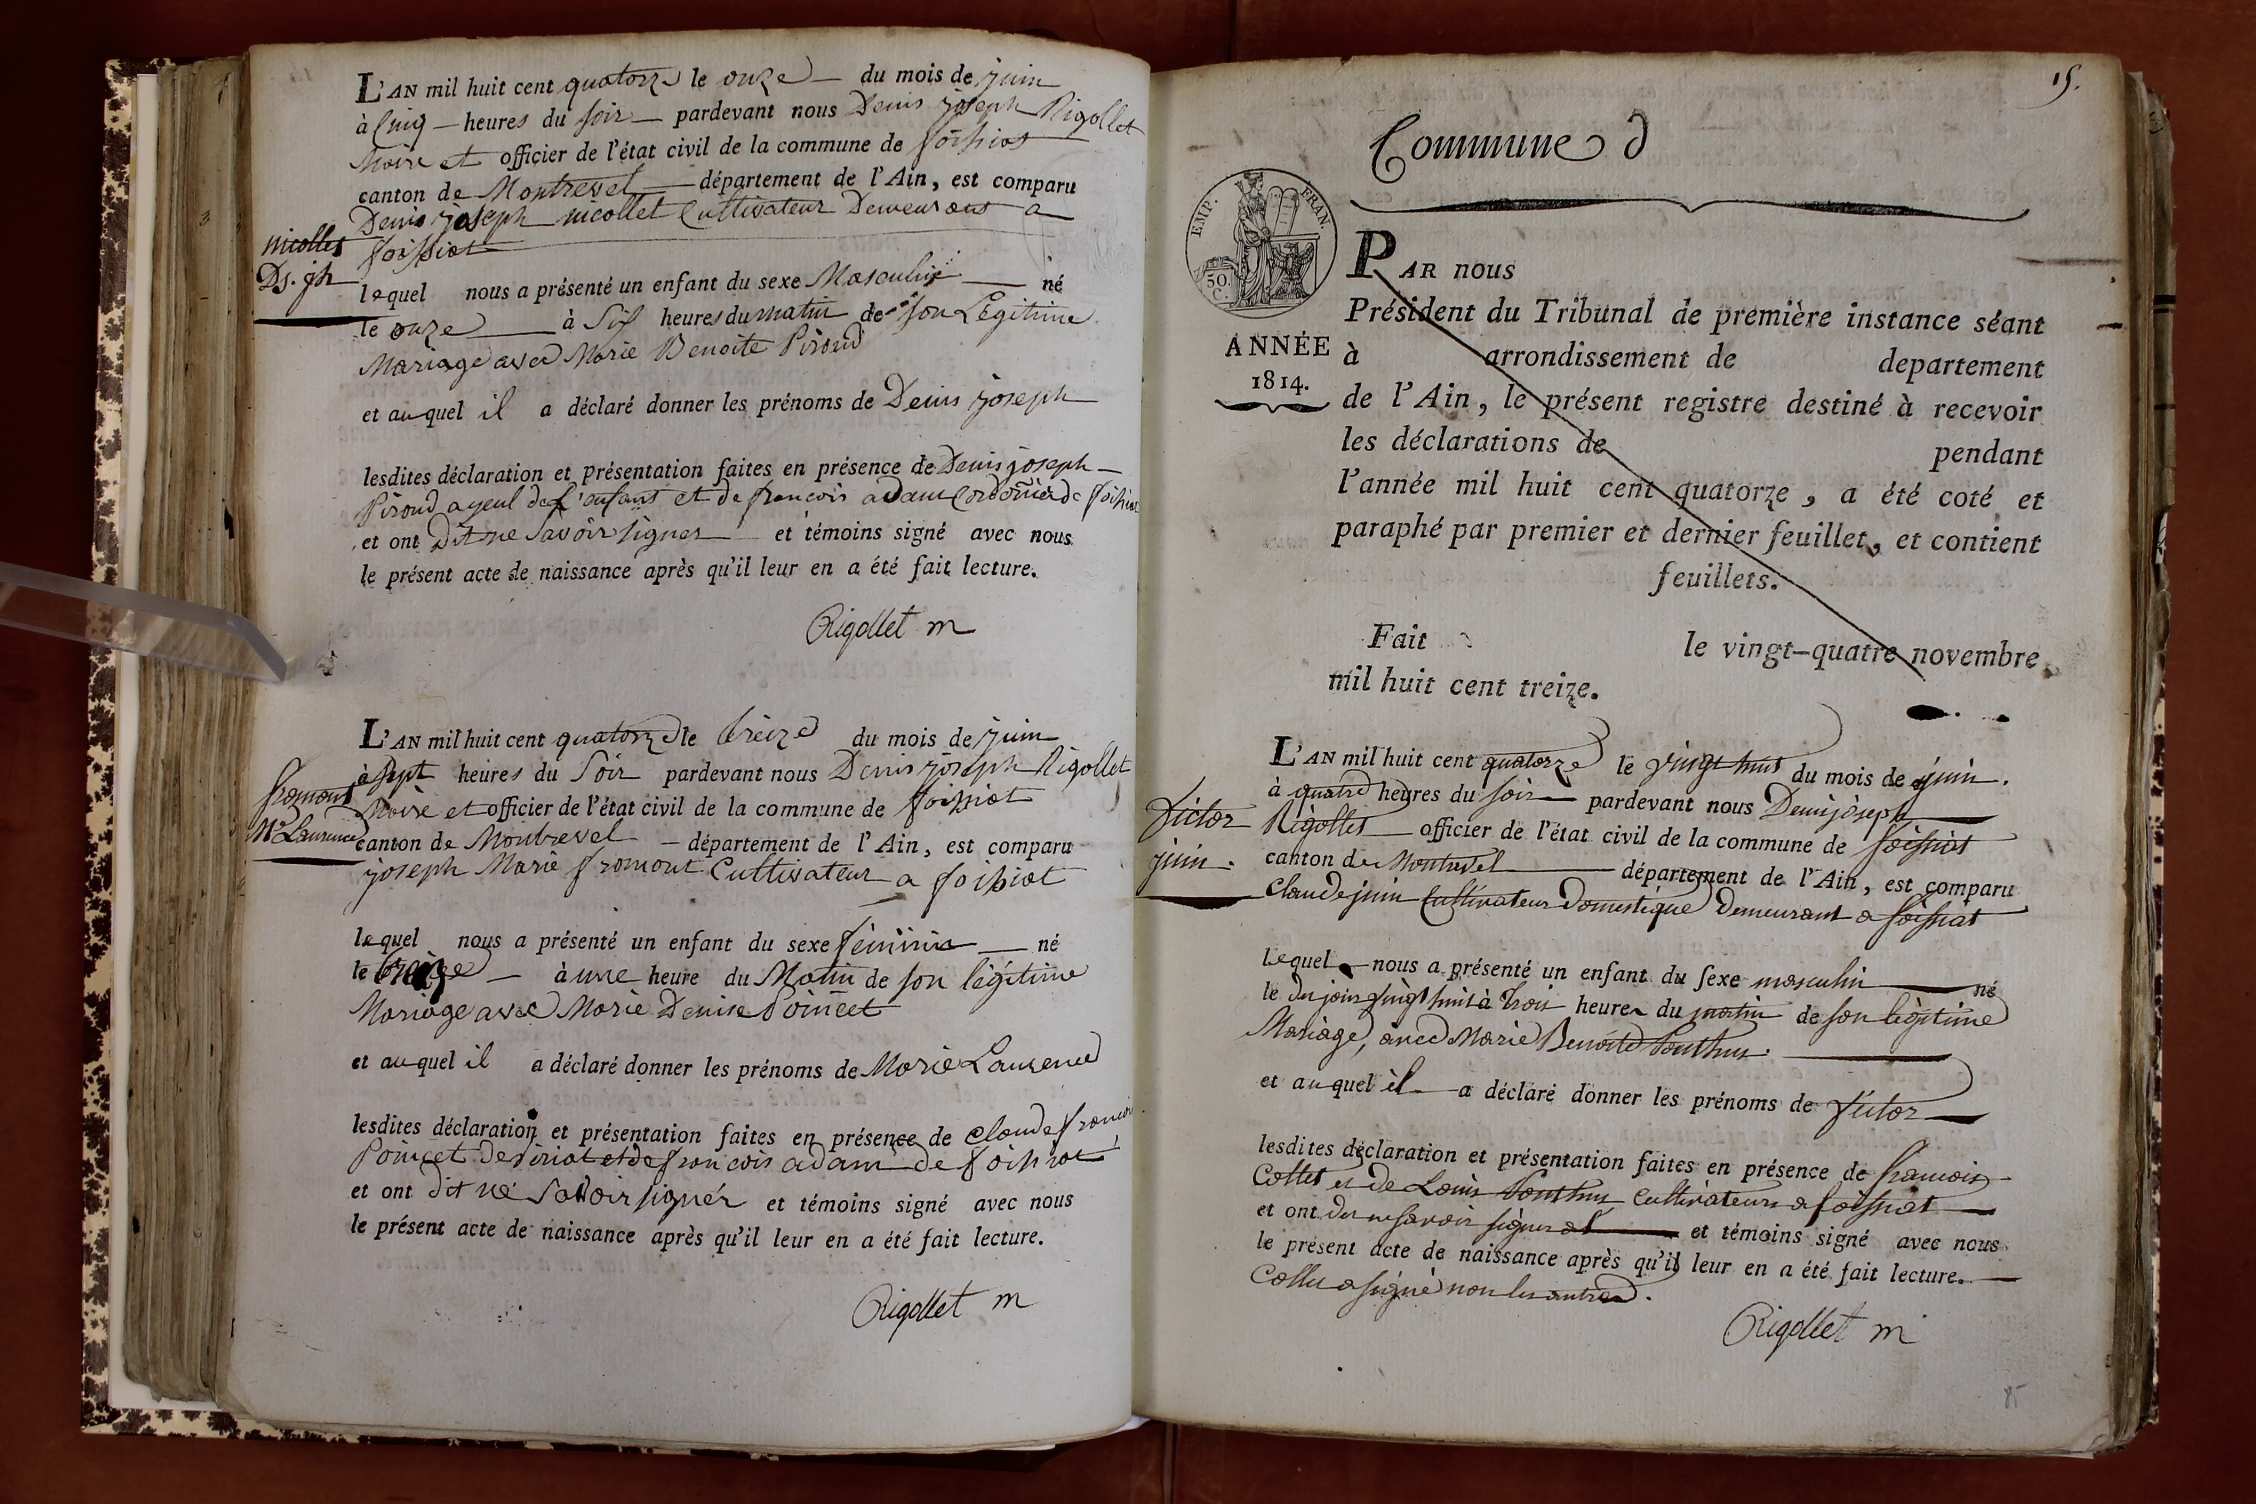 L'AN mil huit cent quatorze le onze du mois de juin
à cinq heures du soir pardevant nous Denis joseph Rigollet
Maire et officier de l'état civil de la commune de foissiat
canton de Montrevel département de l'Ain, est comparu
Denis joseph nicollet Cultivateur Demeurant a
foissiat
nicollet
Ds. jh
lequel nous a présenté un enfant du sexe Masculin né
le onze à Six heures du matin de son Légitime
Mariage avec Marie Benoite Piroud
et auquel il a déclaré donner les prénoms de Denis joseph
lesdites déclaration et présentation faites en présence de Denis joseph
Piroud ayeul de l'enfant et de francois adam Cordonier de foissiat
et ont Dit ne Savoir signer et témoins signé avec nous
le présent acte de naissance après qu'il leur en a été fait lecture.
Rigollet m
L'AN mil huit cent quatorze le treize du mois de juin
à sept heures du Soir pardevant nous Denis joseph Rigollet
fromont
Maire et officier de l'état civil de la commune de foissiat
Me Laurence
canton de Montrevel département de l'Ain, est comparu
joseph Marie fromont Cultivateur a foissiat
lequel nous a présenté un enfant du sexe féminin né
le treize à une heure du Matin de son légitime
Mariage avec Marie Denise Poincet
et auquel il a déclaré donner les prénoms de Marie Laurence
lesdites déclaration et présentation faites en présence de claude francois
Poincet de et de francois adam de foissiat
et ont dit ne Savoir signér et témoins signé avec nous
le présent acte de naissance après qu'il leur en a été fait lecture.
Rigollet m
15.
Commune d
EMP. FRAN.
50.
C.
ANNÉE
1814.
PAR nous
Président du Tribunal de première instance séant
à arrondissement de departement
de l'Ain, le présent registre destiné à recevoir
les déclarations de pendant
l'année mil huit cent quatorze, a été coté et
paraphé par premier et dernier feuillet, et contient
feuillets.
Fait le vingt-quatre novembre
mil huit cent treize.
L'AN mil huit cent quatorze le vingt huit du mois de juin.
à quatre heures du soir pardevant nous Denis joseph
Victor
Rigollet officier de l'état civil de la commune de foissiat
juin.
canton de Montrevel département de l'Ain, est comparu
Claude juin Cultivateur Domestique Demeurant a foissiat
lequel nous a présenté un enfant du sexe masculin né
le du jour vingt huit à trois heures du matin de son légitime
Mariage, avec Marie Benoite Ponthus.
et auquel il a déclaré donner les prénoms de Victor
lesdites déclaration et présentation faites en présence de francois
Collet et de Louis Ponthus Cultivateurs a foissiat
et ont ne savoir signer et témoins signé avec nous
le présent acte de naissance après qu'il leur en a été fait lecture.
Collet a signé non les autres.
Rigollet m
85